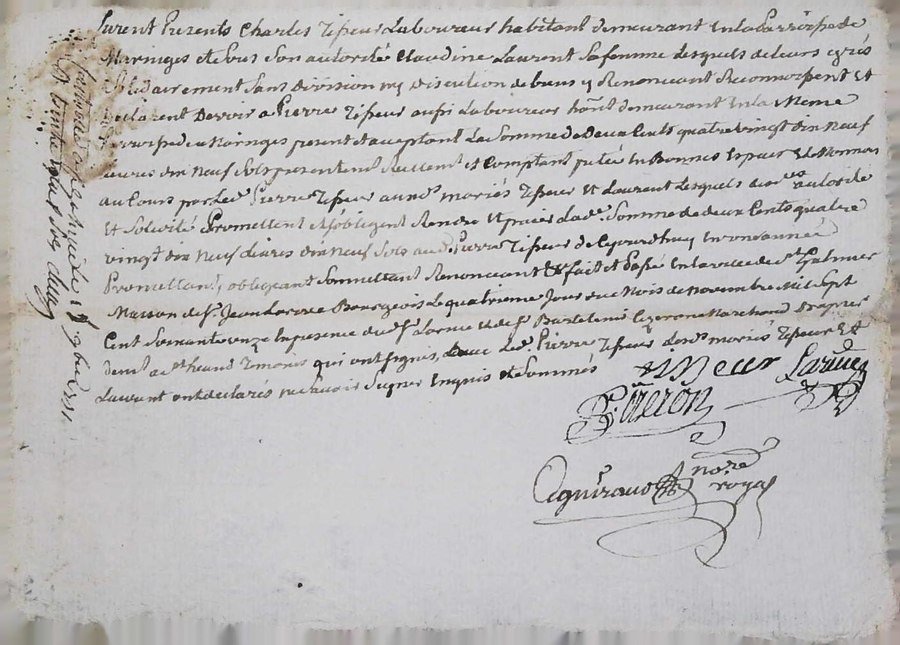 furent Presents Charles Tisseur Laboureur habitant demeurant en la Parroisse de
Maringes et de lui Son autorisée Claudine Laurent Sa femme Lesquels de leurs grés
Solidairement Sans Division ny Discution de biens y Renonceant Reconnoissent Et
declarent Devoir a Pierre Tisseur aussi Laboureur habt demeurant En la Meme
Parroisse de Maringes present et acceptant La Somme de Deux Cents quatre vingt dix Neuf
Livres dix Neuf Sols presentemt Reellemt et Comptant en Bonnes Especes
au Cours par Led Pierre Tisseur auxd mariés Tisseur Et Laurent Lesquels autorité
Et Solidité Promettent & s'obligent Rendre et payer Lade Somme de deux Cents quatre
vingt dix Neuf Livres dix neuf Sols aud Pierre Tisseur de Cejourdhuy en année
Promettant, obligeant Soumettant Renonceant &c fait et Passé En la ville de St Galmier
Maison de Sr Jean Bourgeois Le quatrieme Jour du Mois de Novembre Mil Sept
Cent Soixante onze En presence dud Sr et de Sr Bartelemi Marchand
demt aud St heand Temoins qui ont signés, avec Led Pierre Tisseur Lesd mariés Tisseur Et
Laurent ont declarés ne Scavoir Signer Enquis et Sommés
tisseur
nore
royal